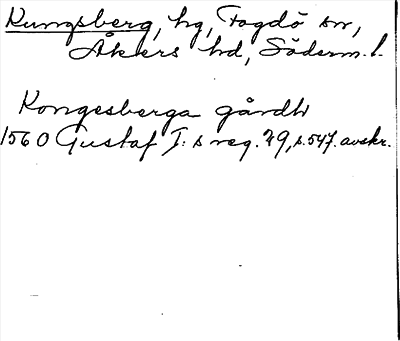 Kungsberg, hg, Fogdö sn,
Åkers hd, Söderm. l.
Kongesberga gårdh
1560 Gustaf I:s reg. 29, s. 547. avskr.